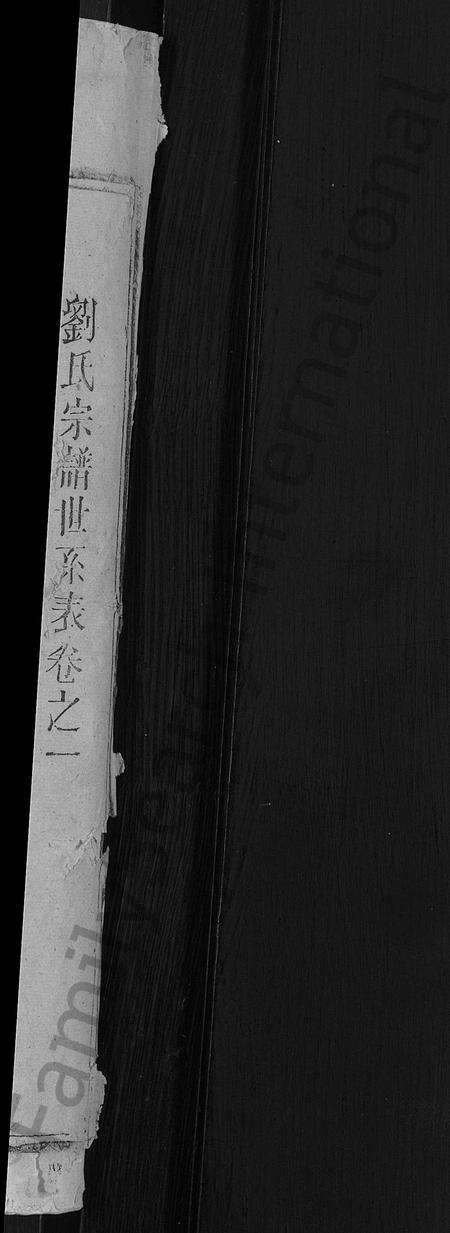 劉氏宗譜世系表卷之一
Family Search International